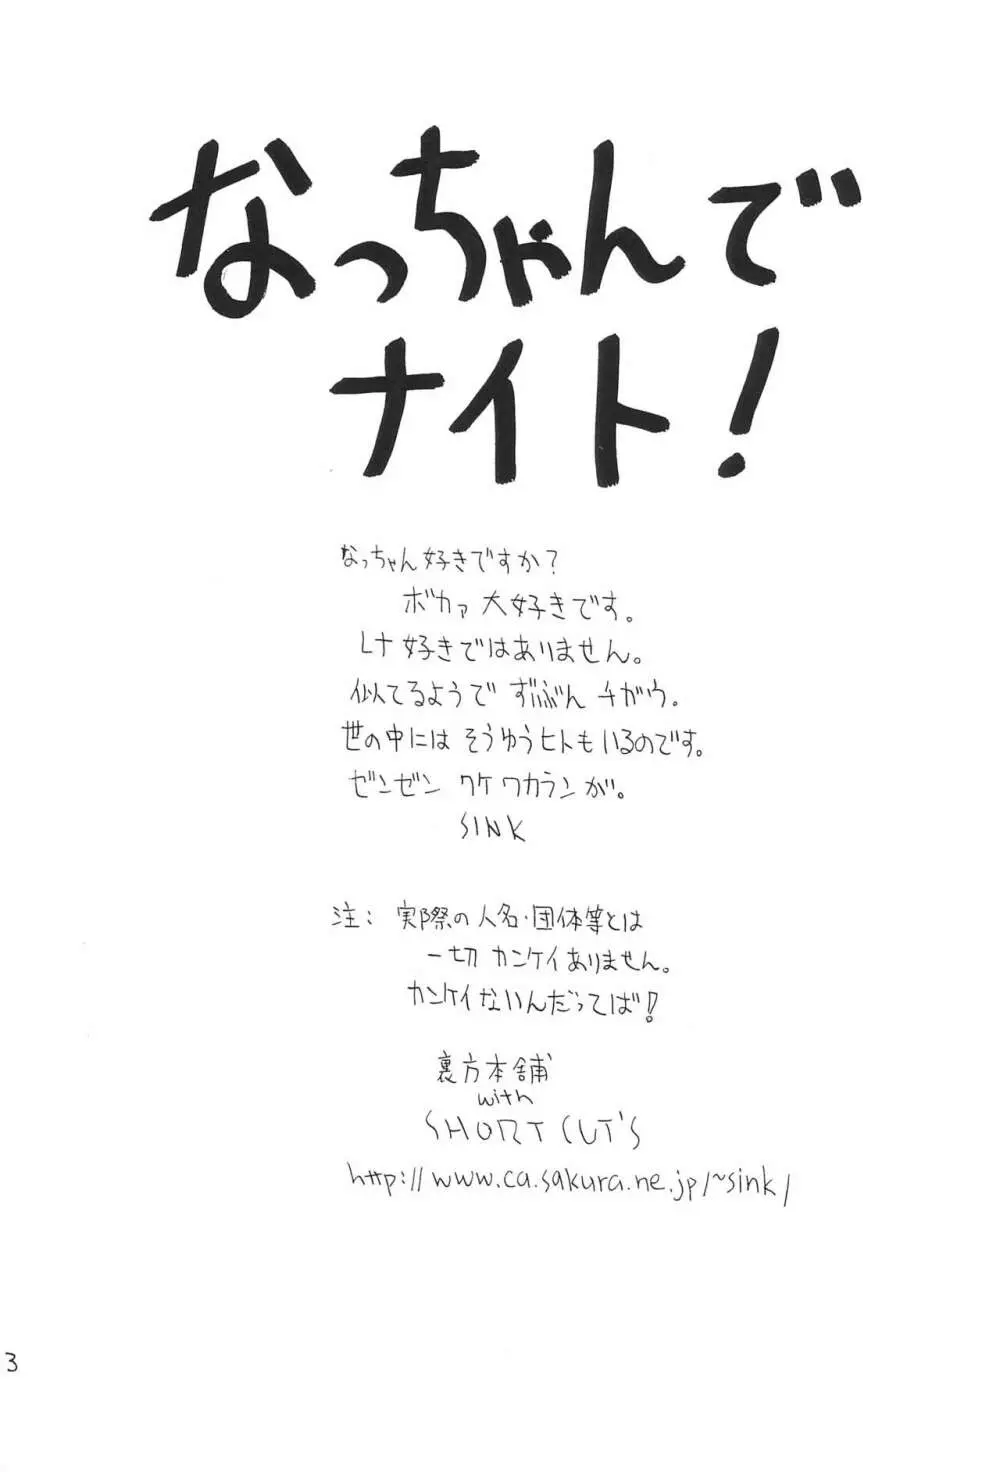 なっちゃんで
ナイト!
なっちゃん好きですか?
ボカァ 大好きです。
Lナ好きではありません。
似てるようで ずいぶん チガウ。
世の中には そうゆうヒトもいるのです。
ゼンゼン ワケワカランが。
SINK
注: 実際の人名・団体等とは
一切 カンケイありません。
カンケイないんだってば!
裏方本舗
with
SHORT CUT'S
http://www.ca.sakura.ne.jp/~sink/
3